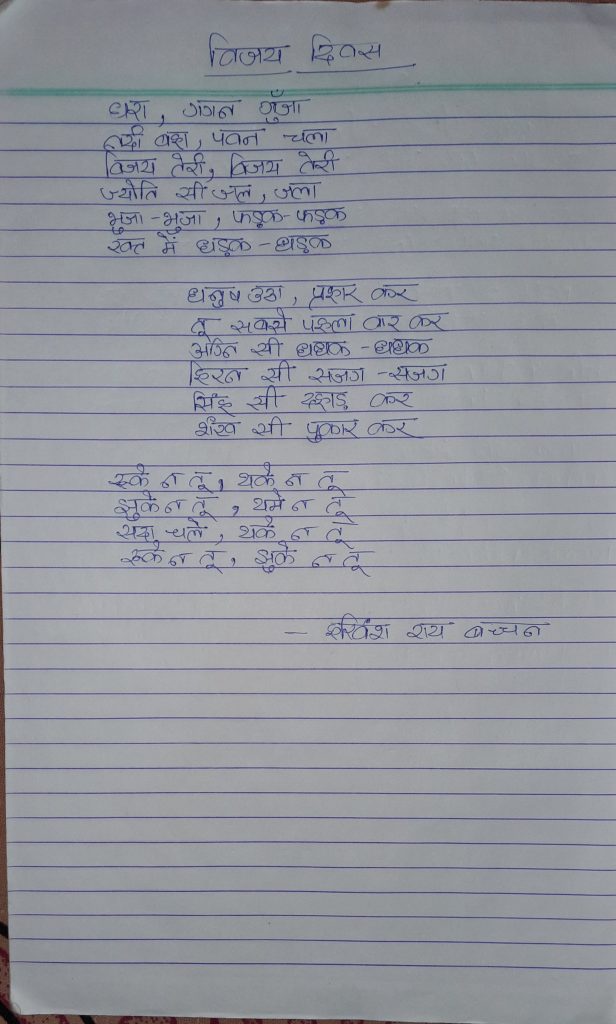 विजय दिवस
धरा, गगन गूँजा
नदी बहा, पवन चला
विजय तेरी, विजय तेरी
ज्योति सी जल, जला
भुजा-भुजा, फड़क-फड़क
रक्त में धड़क-धड़क
धनुष उठा, प्रहार कर
तू सबसे पहला वार कर
अग्नि सी धधक-धधक
हिरन सी सजग-सजग
सिंह सी दहाड़ कर
शंख सी पुकार कर
रुके न तू, थके न तू
झुके न तू, थमे न तू
सदा चले, थके न तू
रुके न तू, झुके न तू
- हरिवंश राय बच्चन